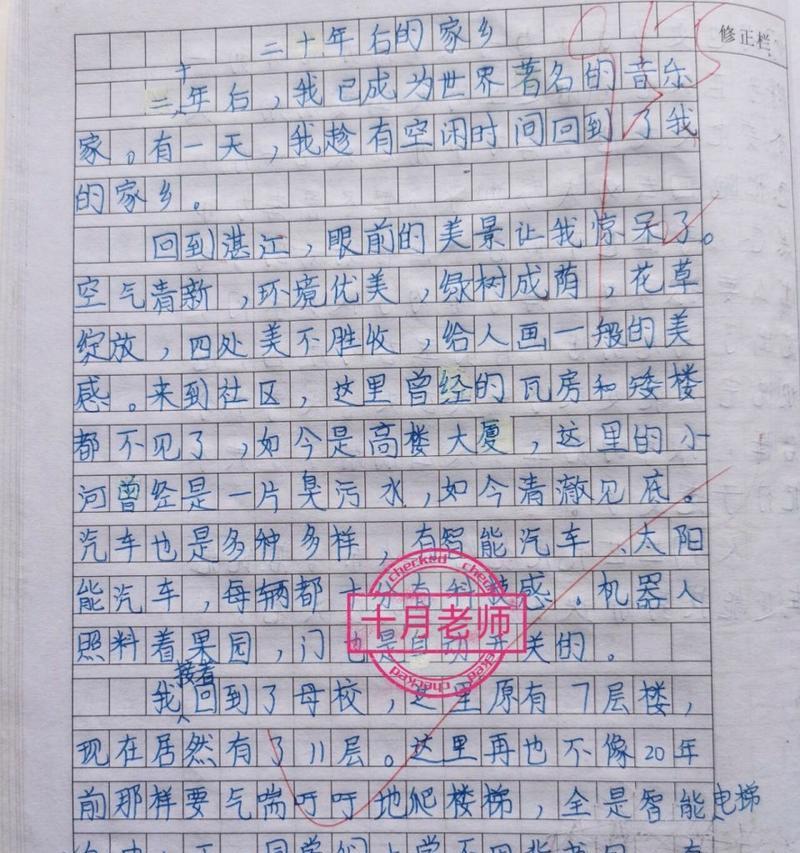 二十年后的家乡
修正栏
二十年后，我已成为世界著名的音乐
家。有一天，我趁有空闲时间回到了我
的家乡。
回到湛江，眼前的美景让我惊呆了。
空气清新，环境优美，绿树成荫，花草
绽放，四处美不胜收，给人画一般的美
感。来到社区，这里曾经的瓦房和矮楼
都不见了，如今是高楼大厦，这里的小
河曾经是一片臭污水，如今清澈见底。
汽车也是多种多样，有智能汽车、太阳
能汽车，每辆都十分有科技感。机器人
照料着果园，门也是自动开关的。
checked
十月老师
checked
我接着回到了母校，这里原有7层楼，
现在居然有了11层。这里再也不像20年
前那样要气喘吁吁地爬楼梯，全是智能电梯